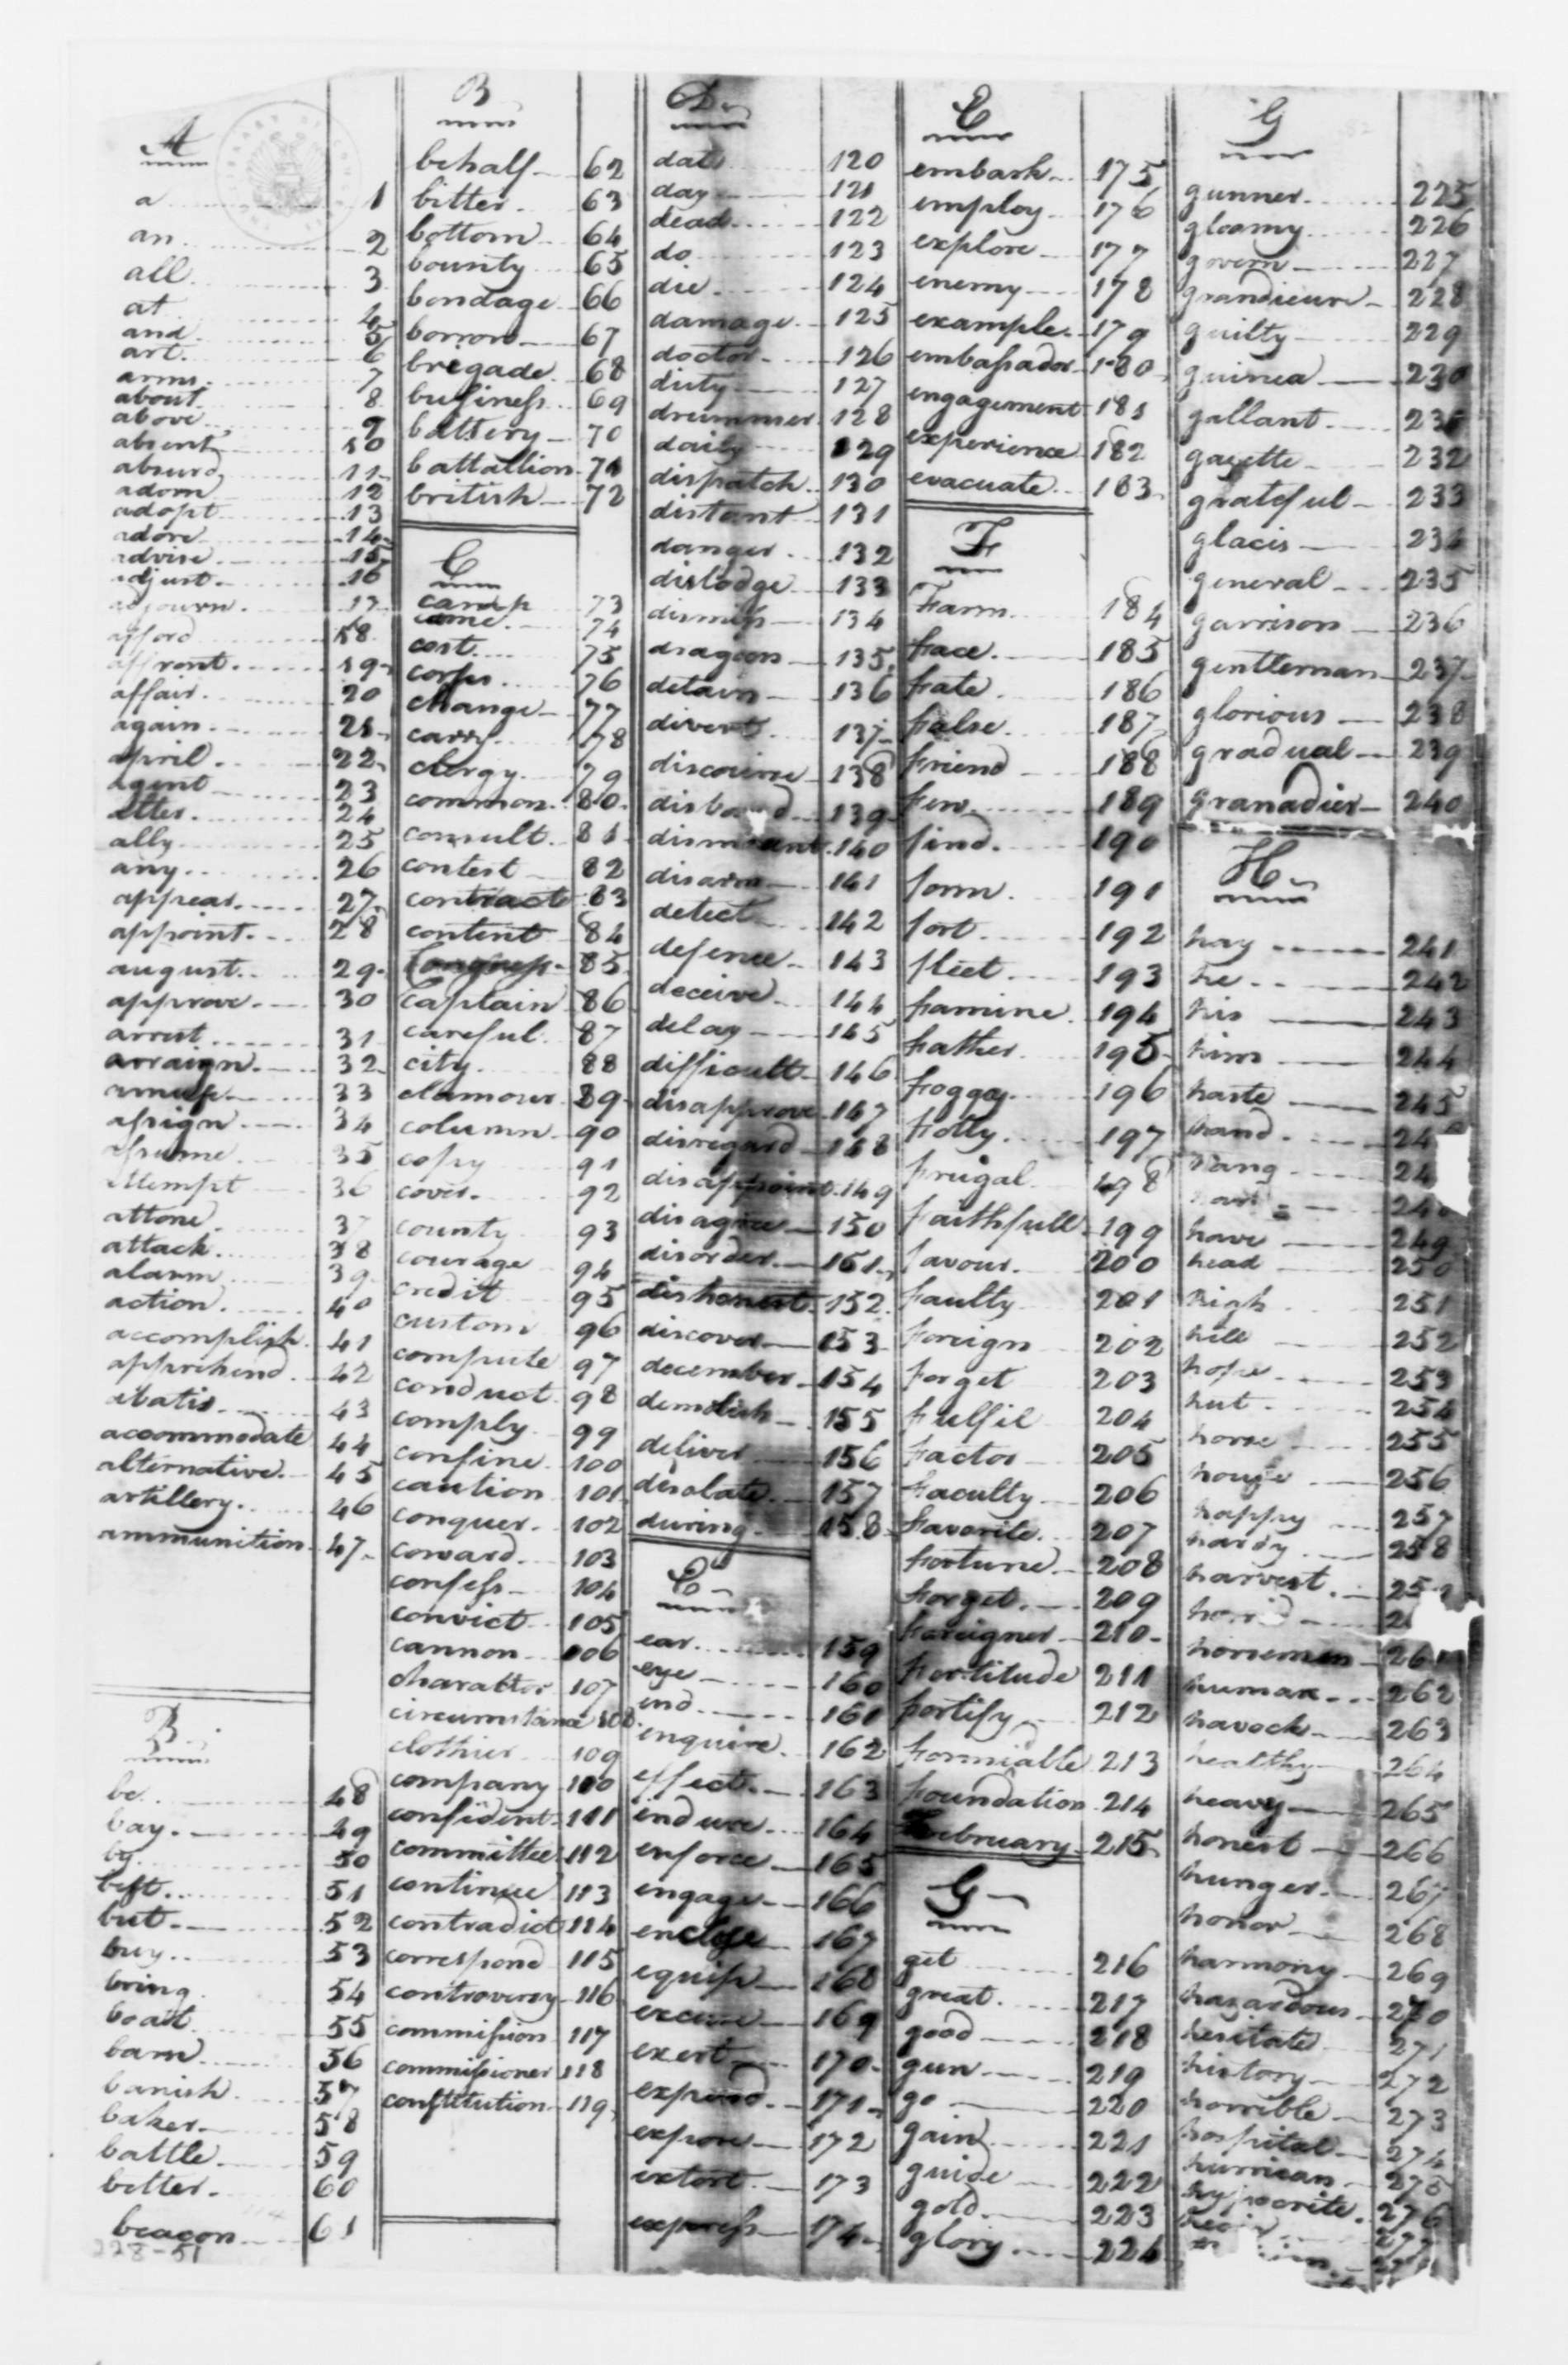 A
a 1
an 2
all 3
at 4
and 5
art 6
arms 7
about 8
above 9
absent 10
absurd 11
adorn 12
adopt 13
adore 14
advise 15
adjust 16
adjourn 17
afford 18
affront 19
affair 20
again 21
april 22
agent 23
alter 24
ally 25
any 26
appear 27
appoint 28
august 29
approve 30
arrest 31
arraign 32
amuse 33
assign 34
assume 35
attempt 36
attone 37
attack 38
alarm 39
action 40
accomplish 41
apprehend 42
abatis 43
accommodate 44
alternative 45
artillery 46
ammunition 47
B
be 48
bay 49
by 50
best 51
but 52
buy 53
bring 54
boat 55
barn 56
banish 57
baker 58
battle 59
better 60
beacon 61
228-51
B
behalf 62
bitter 63
bottom 64
bounty 65
bondage 66
borrow 67
bregade 68
business 69
battery 70
battallion 71
british 72
C
camp 73
came 74
cost 75
corps 76
change 77
carry 78
clergy 79
common 80
consult 81
contest 82
contract 83
content 84
Congress 85
Captain 86
careful 87
city 88
clamour 89
column 90
copy 91
cover 92
county 93
courage 94
credit 95
custom 96
compute 97
conduct 98
comply 99
confine 100
caution 101
conquer 102
coward 103
confess 104
convict 105
cannon 106
charatter 107
circumstance 108
clothier 109
company 110
confident 111
committee 112
continue 113
contradict 114
correspond 115
controversy 116
commission 117
commissioner 118
constitution 119
D
date 120
day 121
dead 122
do 123
die 124
damage 125
doctor 126
duty 127
drummer 128
daily 129
dispatch 130
distant 131
danger 132
dislodge 133
dismiss 134
dragoon 135
detain 136
divert 137
discourse 138
disband 139
dismount 140
disarm 141
detect 142
defence 143
deceive 144
delay 145
difficult 146
disapprove 147
disregard 148
disappoint 149
disagree 150
disorder 151
dishonest 152
discover 153
december 154
demolish 155
deliver 156
desolate 157
during 158
E
ear 159
eye 160
end 161
enquire 162
effect 163
endure 164
enforce 165
engage 166
enclose 167
equip 168
excuse 169
exert 170
expend 171
expose 172
extort 173
express 174
E
embark 175
employ 176
explore 177
enemy 178
example 179
embassador 180
engagement 181
experience 182
evacuate 183
F
Farm 184
face 185
fate 186
false 187
friend 188
few 189
find 190
form 191
fort 192
fleet 193
famine 194
father 195
foggy 196
folly 197
frugal 198
faithfull 199
favour 200
faulty 201
foreign 202
forget 203
fulfil 204
factor 205
faculty 206
favorite 207
fortune 208
forget 209
foreigner 210
fortitude 211
fortify 212
formiable 213
foundation 214
February 215
G
get 216
great 217
good 218
gun 219
go 220
gain 221
guide 222
gold 223
glory 224
G
gunner 225
gloomy 226
govern 227
grandieure 228
guilty 229
guinea 230
gallant 231
gazette 232
grateful 233
glacis 234
general 235
garrison 236
gentleman 237
glorious 238
gradual 239
granadier 240
H
hay 241
he 242
his 243
him 244
haste 245
hand 24
hang 24
24
have 249
head 250
high 251
hill 252
hope 253
hut 254
horse 255
house 256
happy 257
hardy 258
harvest 25
horrid 2
horseman 261
human 262
havock 263
healthy 264
heavy 265
honest 266
hunger 267
honor 268
harmony 269
hazardous 270
hesitate 271
history 272
horrible 273
hospital 274
hurrican 275
hypocrite 276
277